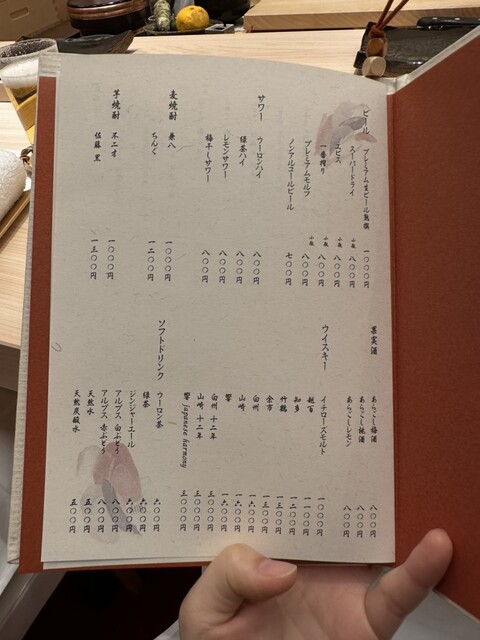 ビール
プレミアム生ビール熟撰 一〇〇〇円
スーパードライ 小瓶 八〇〇円
エビス 小瓶 八〇〇円
一番搾り 小瓶 八〇〇円
プレミアムモルツ 小瓶 八〇〇円
ノンアルコールビール 七〇〇円
サワー
ウーロンハイ 八〇〇円
緑茶ハイ 八〇〇円
レモンサワー 八〇〇円
梅干しサワー 八〇〇円
麦焼酎
兼八 一〇〇〇円
ちんぐ 一二〇〇円
芋焼酎
不二才 一〇〇〇円
佐藤 黒 一三〇〇円
果実酒
あらごし梅酒 八〇〇円
あらごし桃酒 八〇〇円
あらごしレモン 八〇〇円
ウイスキー
イチローズモルト 一〇〇〇円
越百 一一〇〇円
知多 一二〇〇円
竹鶴 一三〇〇円
余市 一三〇〇円
白州 一六〇〇円
山崎 一六〇〇円
響 一六〇〇円
白州 十二年 三〇〇〇円
山崎 十二年 三〇〇〇円
響 Japanese harmony 三〇〇〇円
ソフトドリンク
ウーロン茶 六〇〇円
緑茶 六〇〇円
ジンジャーエール 六〇〇円
アルプス 白ぶどう 八〇〇円
アルプス 赤ぶどう 八〇〇円
天然水 五〇〇円
天然炭酸水 五〇〇円